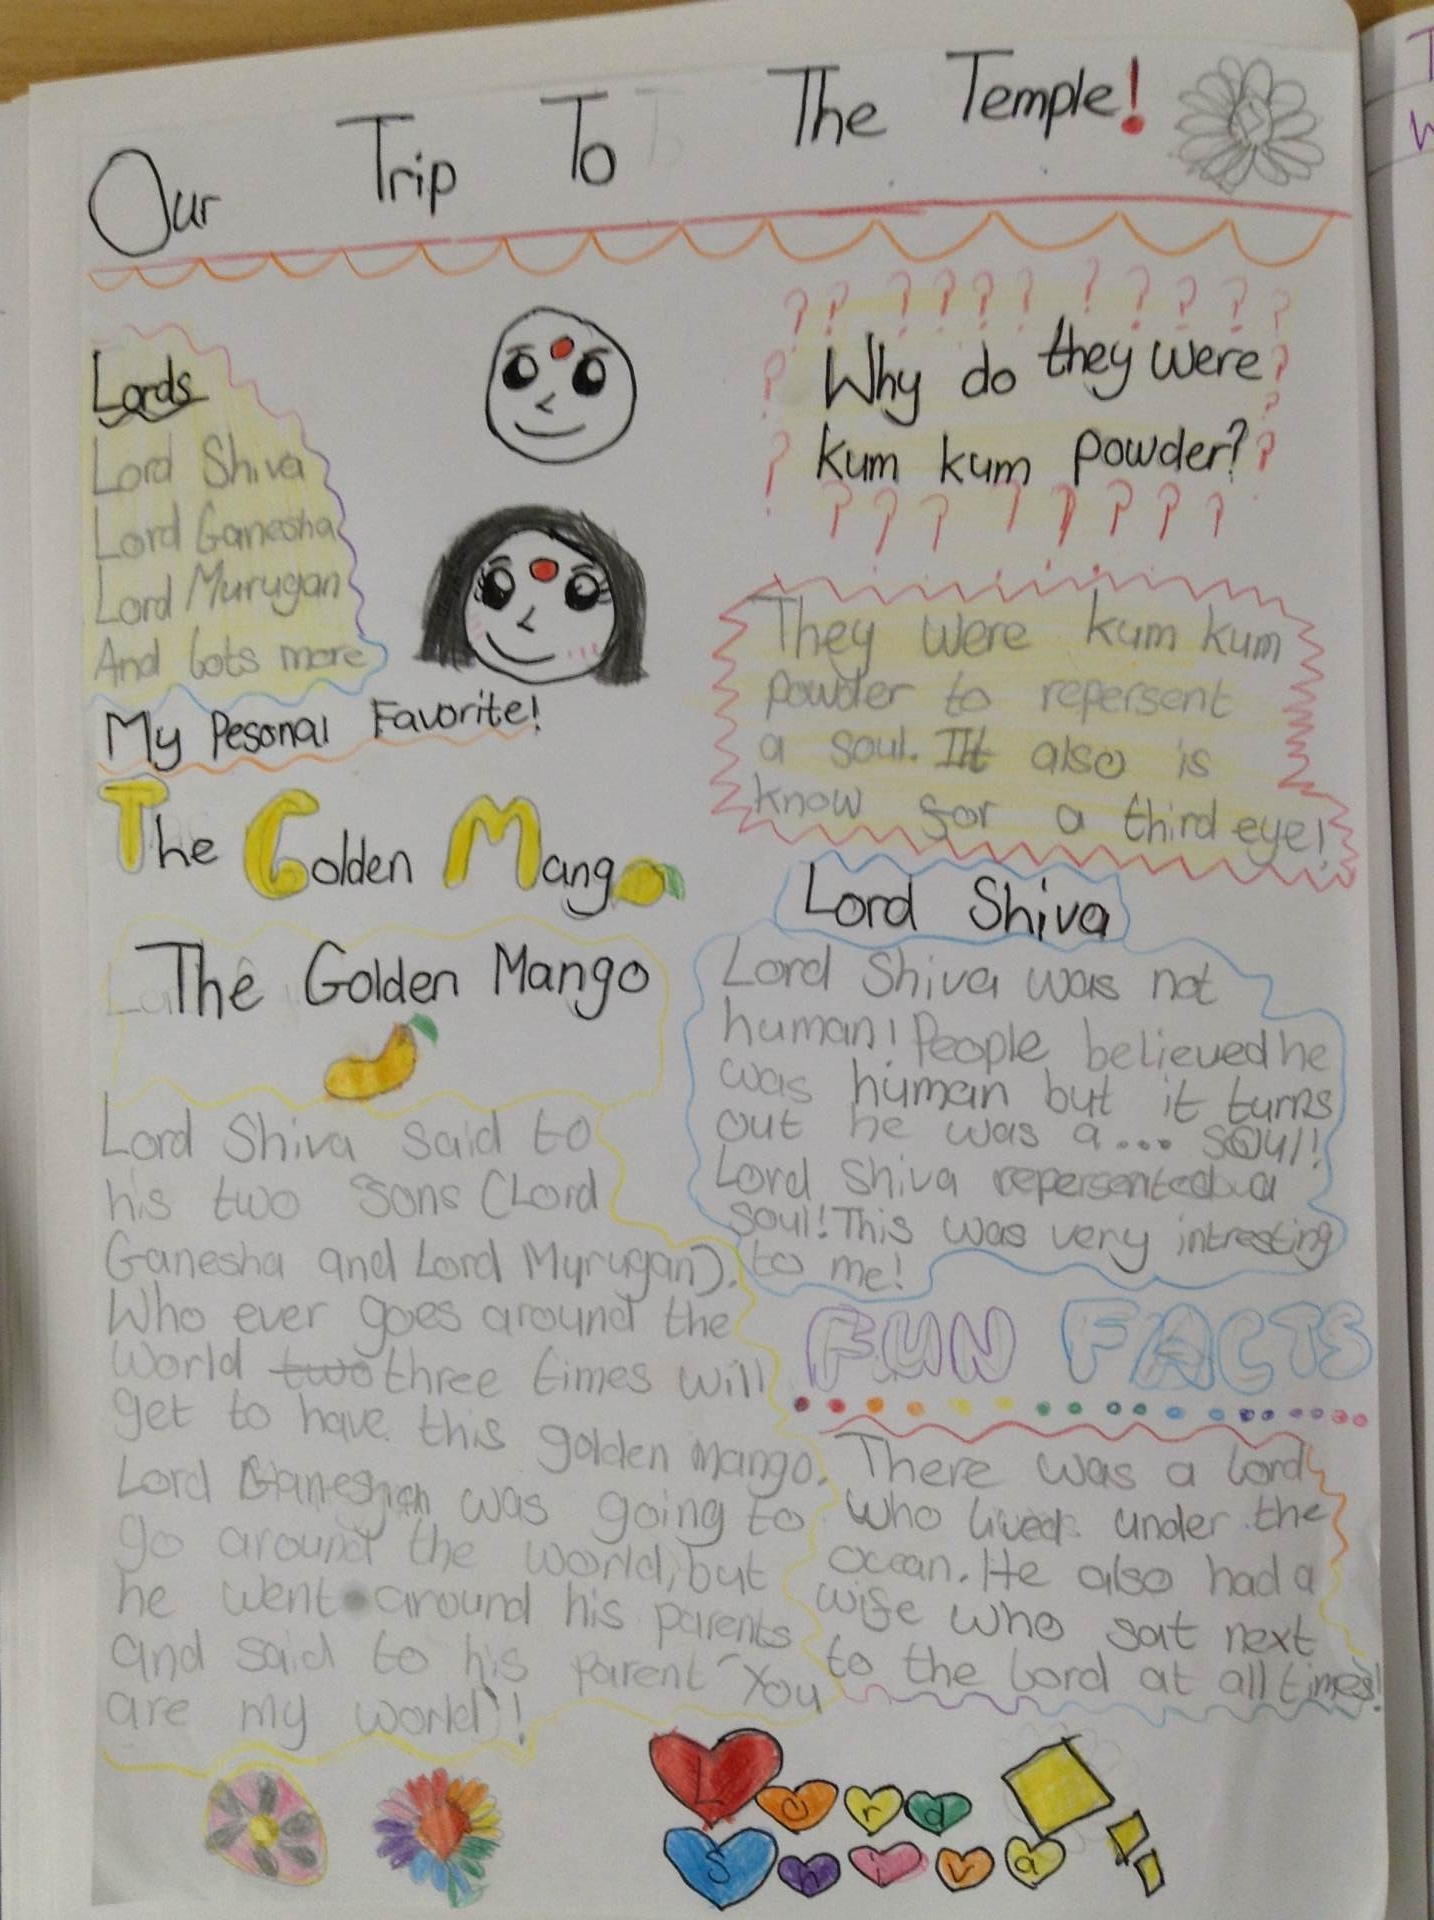 Our Trip To The Temple!
Lords
Lord Shiva
Lord Ganesha
Lord Murugan
And lots more
My Pesonal Favorite!
The Golden Mango
The Golden Mango
Lord Shiva said to
his two sons (Lord
Ganesha and Lord Myrugan).
Who ever goes around the
world two three times will
get to have this golden mango.
Lord was going to
go around the world, but
he went around his parents
and said to his parent "You
are my world"!
Why do they were
kum kum powder?
They were kum kum
powder to repersent
a soul. It also is
know for a third eye!
Lord Shiva
Lord Shiva was not
human! People believed he
was human but it turns
out he was a... soul!
Lord Shiva repersented a
soul! This was very intresting
to me!
FUN FACTS
There was a lord
who lived under the
ocean. He also had a
wife who sat next
to the lord at all times!
Lord
Shiva